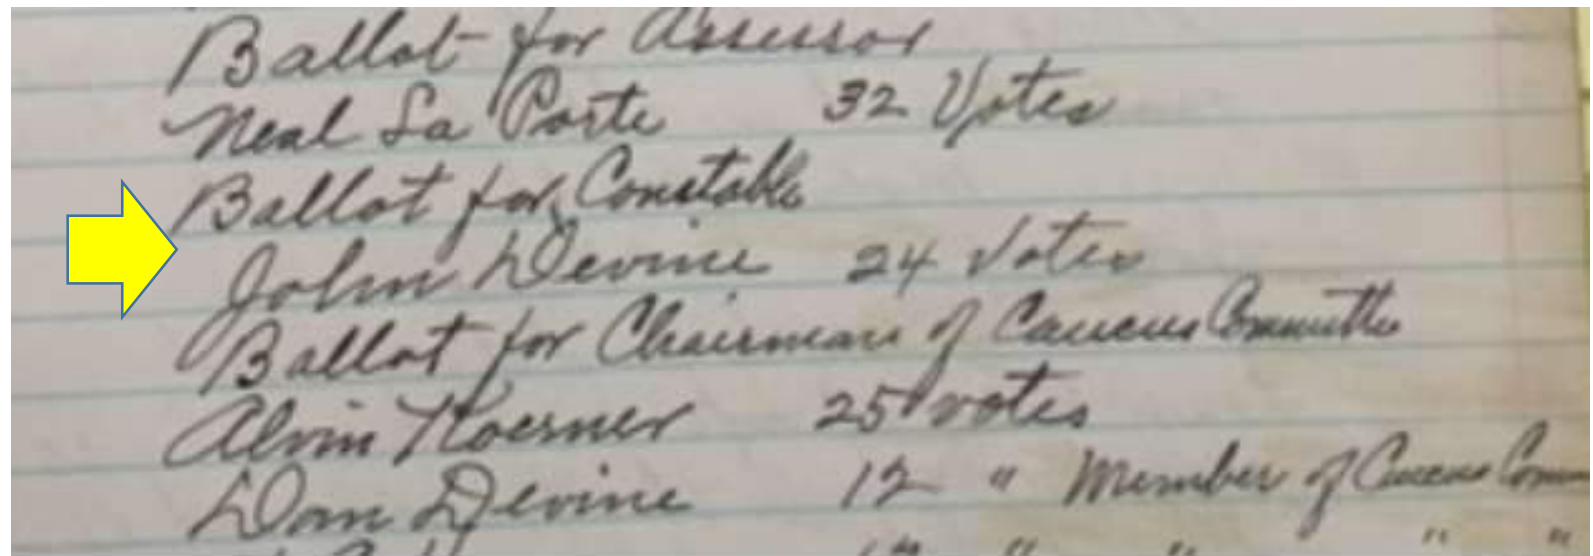 Ballot for Assessor
Neal La Porte 32 Votes
Ballot for Constable
John Devine 24 Votes
Ballot for Chairman of Caucus Committe
Alvin Koerner 25 votes
Dan Devine 12 " Member of Caucus Comm
" " " "